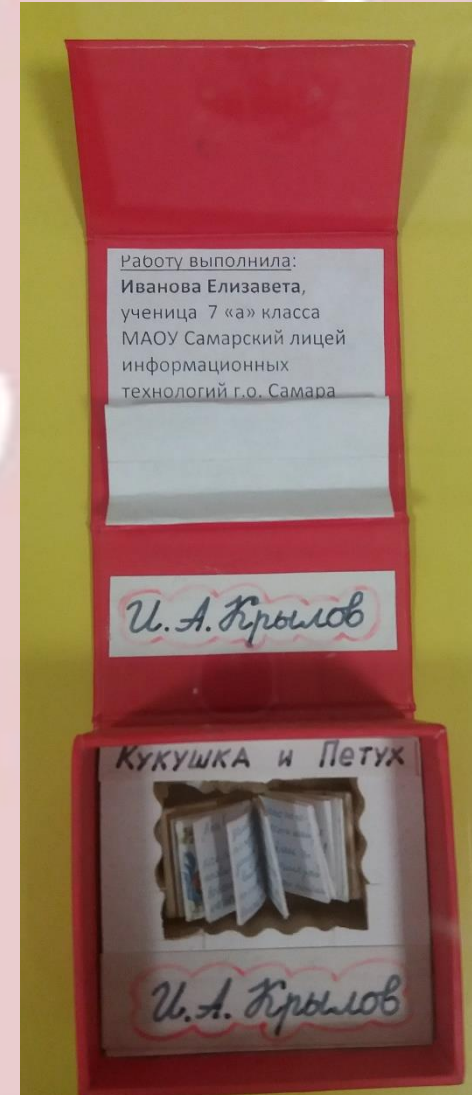 Работу выполнила:
Иванова Елизавета,
ученица 7 «а» класса
МАОУ Самарский лицей
информационных
технологий г.о. Самара
И. А. Крылов
Кукушка и Петух
И. А. Крылов